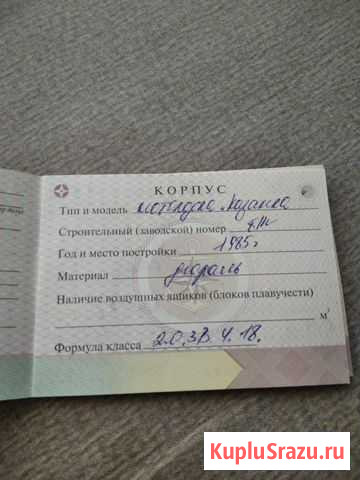 КОРПУС
Тип и модель мотолодка Казанка
Строительный (заводской) номер б/н
Год и место постройки 1985г
Материал дюраль
Наличие воздушных ящиков (блоков плавучести)
м³
Формула класса 2.0.3В.4.18.
KupluSrazu.ru